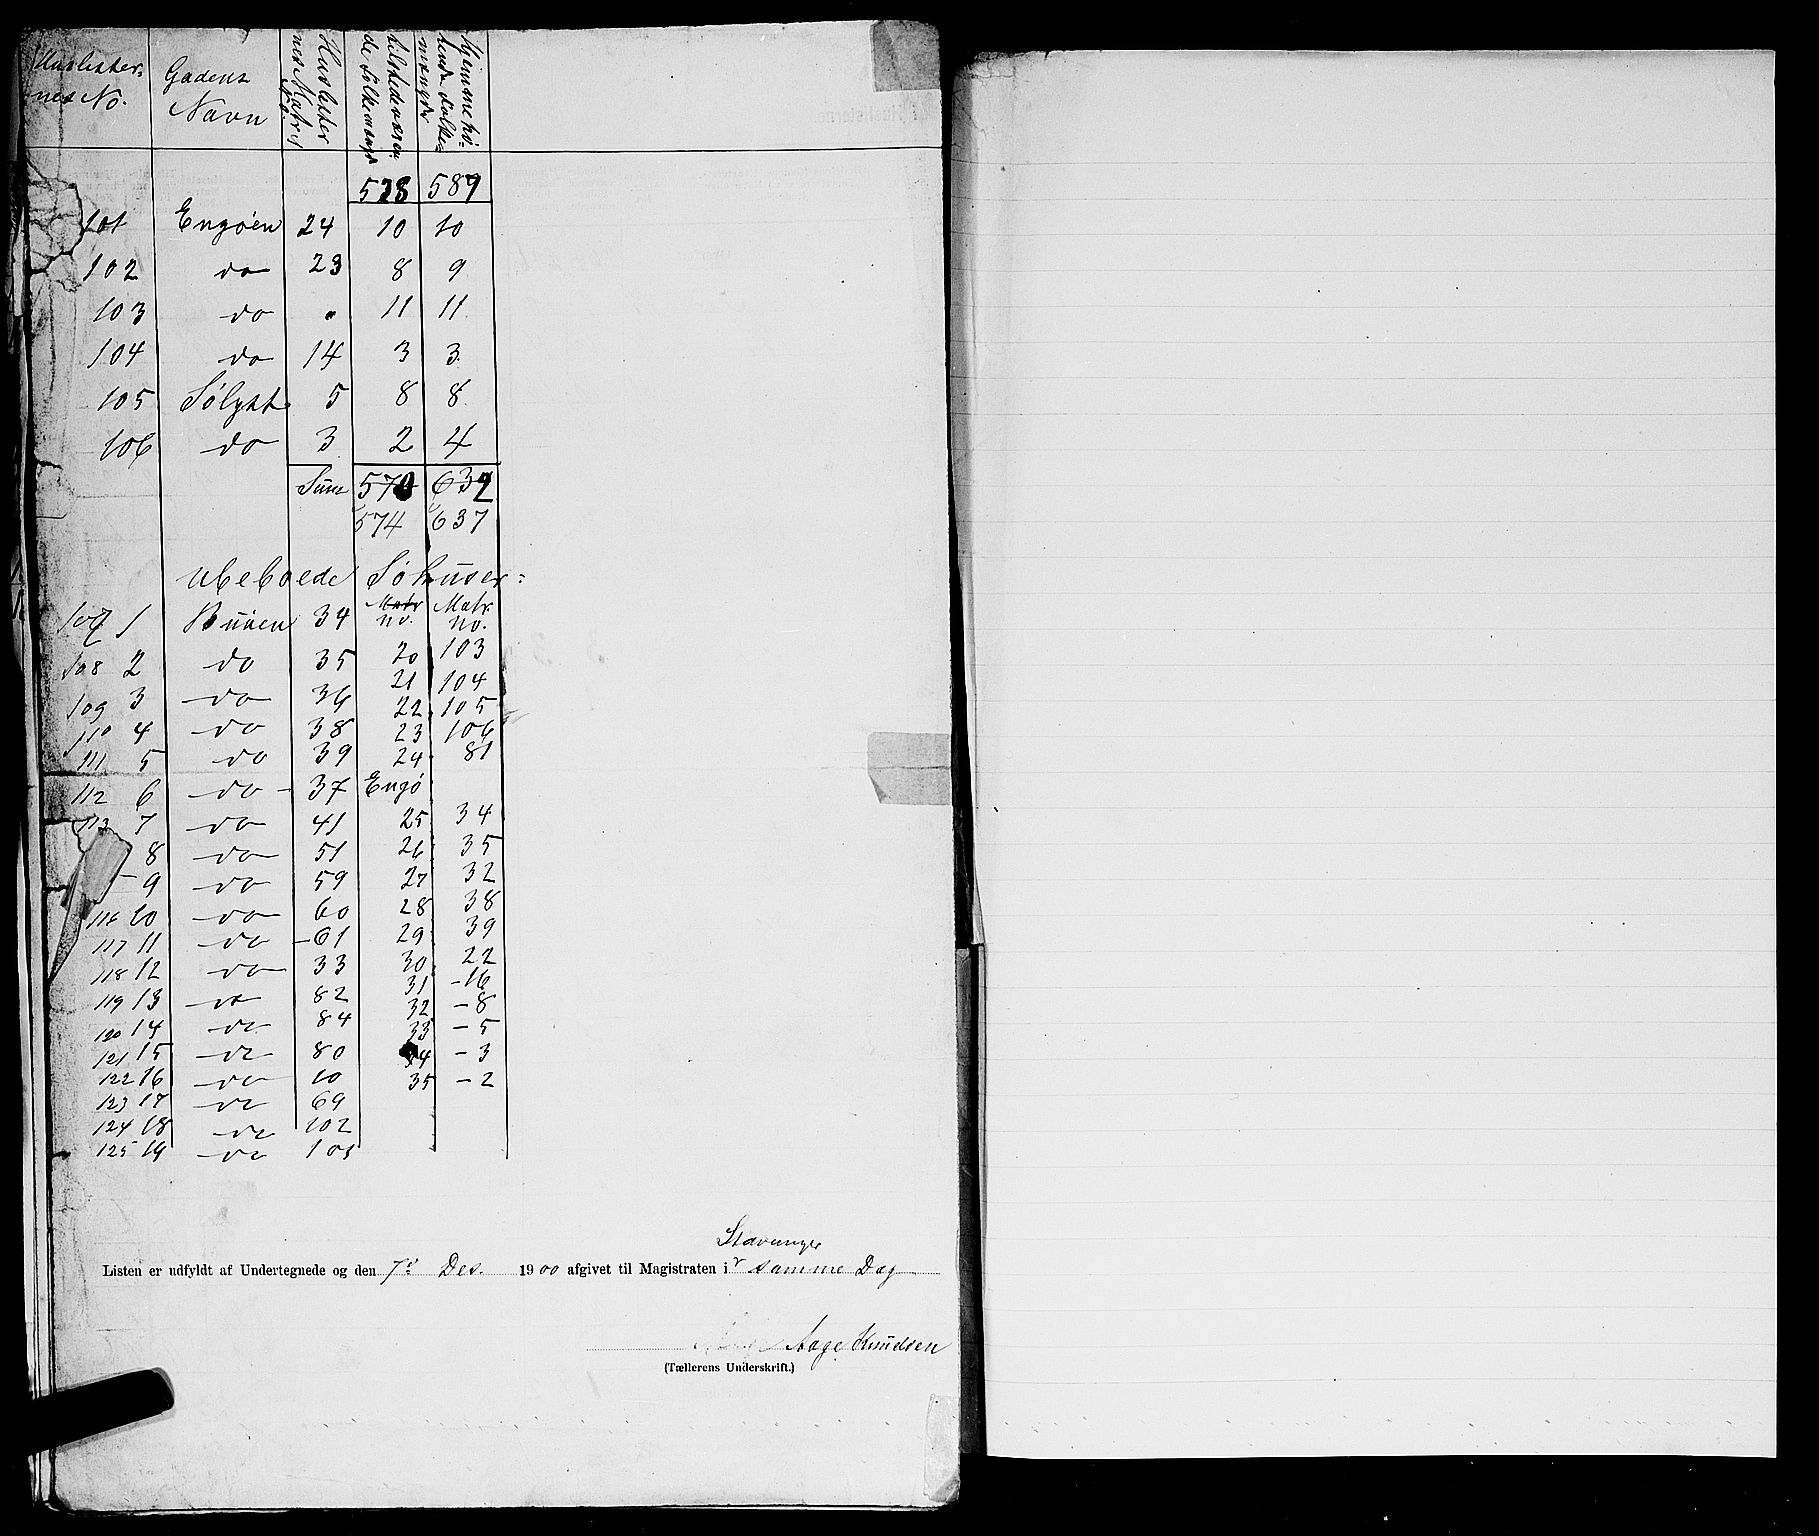 Huslister-
nes No.
Gadens
Navn
Huslister
nes Matr
No.
tilstedeværen
de Folkemængde
Hjemmehø-
rende Folke=
mængde
528 587
101 Engøen 24 10 10
102 do 23 8 9
103 do " 11 11
104 do 14 3 3
105 Sølyst 5 8 8
106 do 3 2 4
Sum 570 632
574 637
Ubeboede Søhuser=
107 1 Buøen 34 Matr no. Matr no.
108 2 do 35 20 103
109 3 do 36 21 104
110 4 do 38 22 105
111 5 do 39 23 106
24 81
112 6 do - 37 Engø
113 7 do 41 25 34
8 do 51 26 35
9 do 59 27 32
116 10 do 60 28 38
117 11 do - 61 29 39
118 12 do 33 30 22
119 13 do 82 31 - 16
120 14 do 84 32 - 8
121 15 do 80 33 - 5
122 16 do 10 34 - 3
123 17 do 69 35 - 2
124 18 do 102
125 19 do 101
Stavanger
Listen er udfyldt af Undertegnede og den 7d Des. 1900 afgivet til Magistraten i samme Dag
Aage Knudsen
(Tællerens Underskrift.)